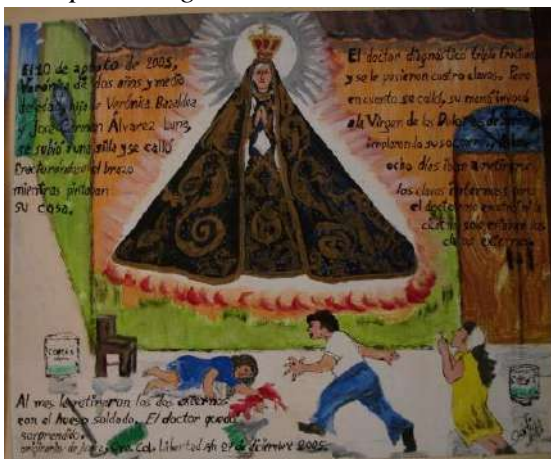 El 10 de agosto de 2005,
Verónica de dos años y medio
de edad, hija de Verónica Basaldua
y José Carmen Álvarez Luna,
se subió a una silla y se calló
fracturándose el brazo
mientras pintaban
su casa.
El doctor diagnosticó triple fractura
y se le pusieron cuatro clavos. Pero
en cuanto se calló, su mamá invocó
a la Virgen de los Dolores de
implorando su socorro.
ocho días iban a retirarle
los clavos internos pero
el doctor no encontró ni la
solo estaban los
clavos externos.
COMEX
COMEX
Al mes le retiraron los dos externos
con el hueso soldado. El doctor quedó
sorprendido.
originarios de Gto. Col. Libertad. 01 de diciembre 2005.